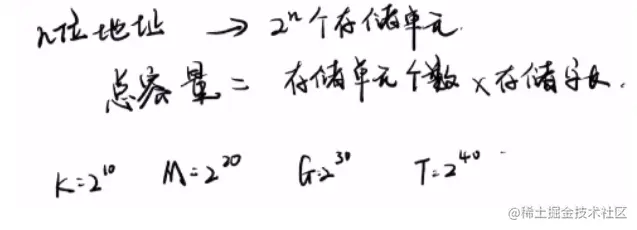 n位地址 → 2ⁿ个存储单元.
总容量 = 存储单元个数 × 存储字长.
K=2¹⁰ M=2²⁰ G=2³⁰ T=2⁴⁰
@稀土掘金技术社区